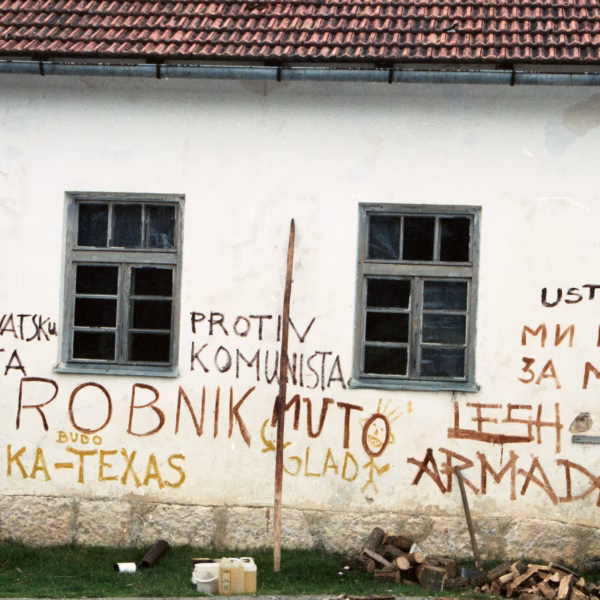 VATSKU
TA
PROTIV
KOMUNISTA
UST
МИ
ЗА
ROBNIK MUTO
LESH
BUDO
KA-TEXAS
GLAD
ARMADA